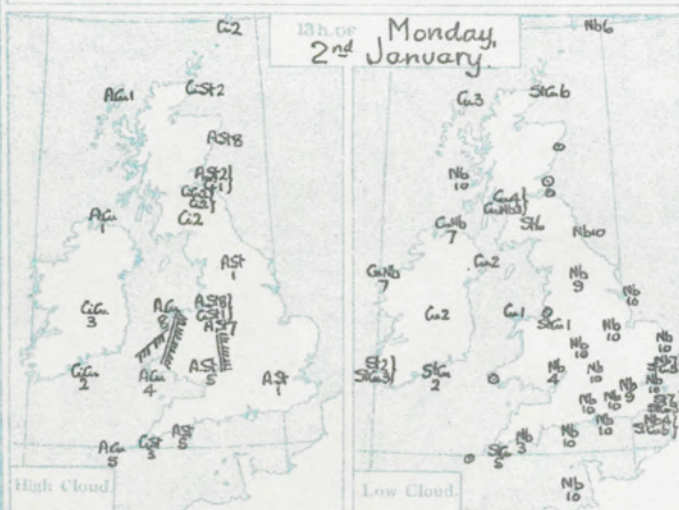 13 h. OF Monday,
2nd January.
Ci2
ACu1
CiSt2
ASt8
ASt2
Ci1
Ci2
ACu
1
Ci2
ASt
1
CiCu
3
ACu
6
ASt8
ASt
5
CiCu
2
ACu
4
ASt
1
ACu
5
CiSt
5
ASt
5
High Cloud.
Nb6
Cu3
StCu6
Nb
10
Cu4
CuNb3
CuNb
7
St6
Nb10
Cu2
CuNb
7
Nb
9
Nb
10
Cu2
Cu1
StCu1
Nb
10
Nb
10
Nb
10
St2
StCu3
StCu
2
Nb
4
Nb
10
Nb
9
Nb
10
Nb
10
Nb
10
StCu
5
Nb
3
Nb
10
Nb
10
Nb
10
Low Cloud.